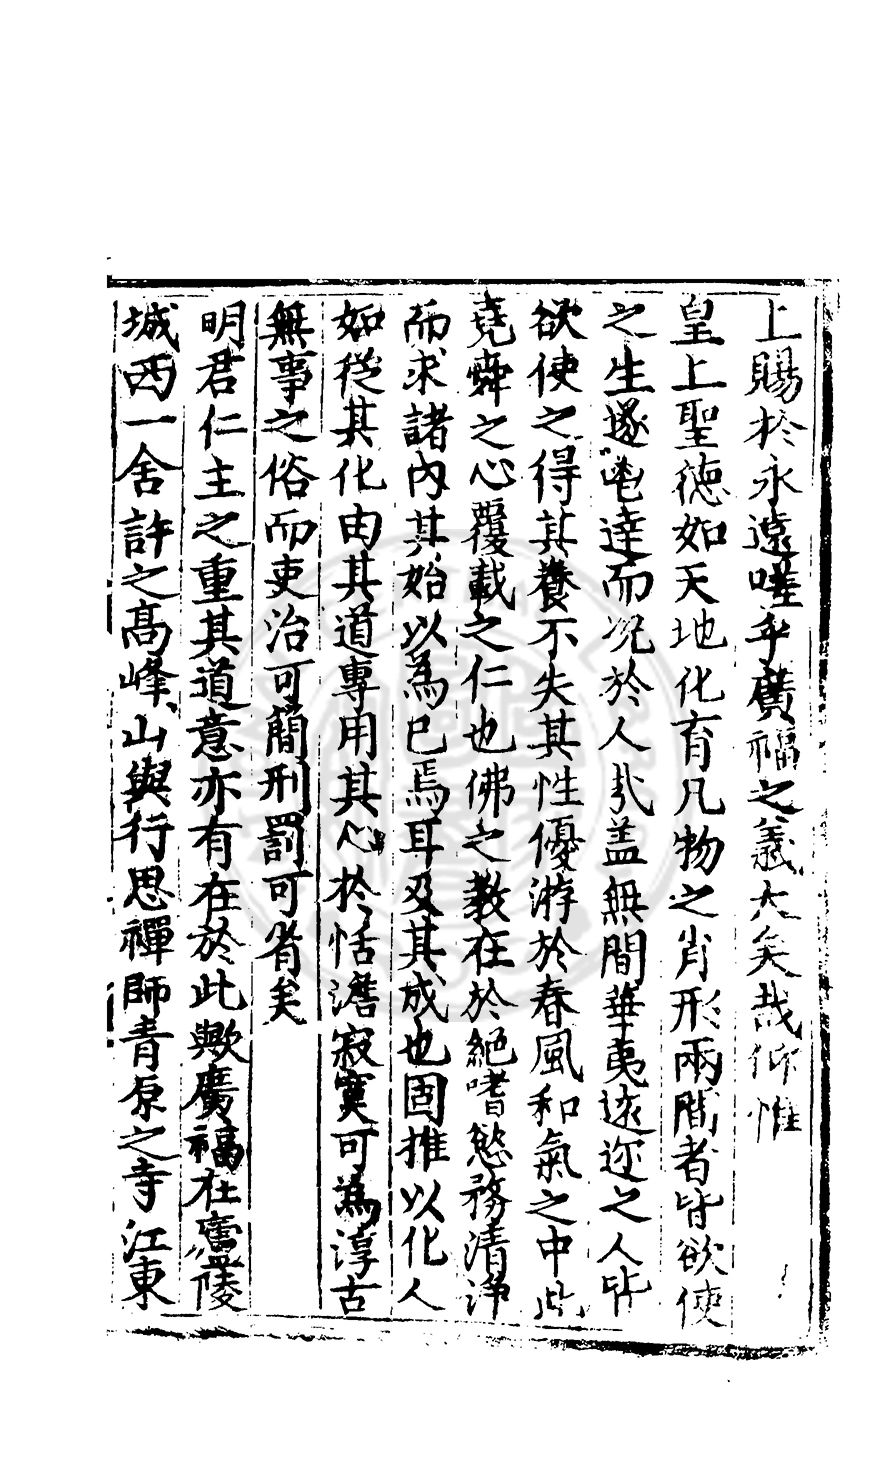 上賜於永遠嗟乎廣福之義大矣哉仰惟
皇上聖德如天地化育凡物之肖形兩間者皆欲使
之生遂鬯達而况於人哉盖無間華夷遠迩之人皆
欲使之得其養不失其性優游於春風和氣之中此
堯舜之心覆載之仁也佛之教在於絕嗜慾務清淨
而求諸內其始以為已焉耳及其成也固推以化人
如從其化由其道專用其心於恬澹寂寞可為淳古
無事之俗而吏治可簡刑罰可省矣
明君仁主之重其道意亦有在於此歟廣福在廬陵
城西一舍許之高峰山與行思禪師青原之寺江東